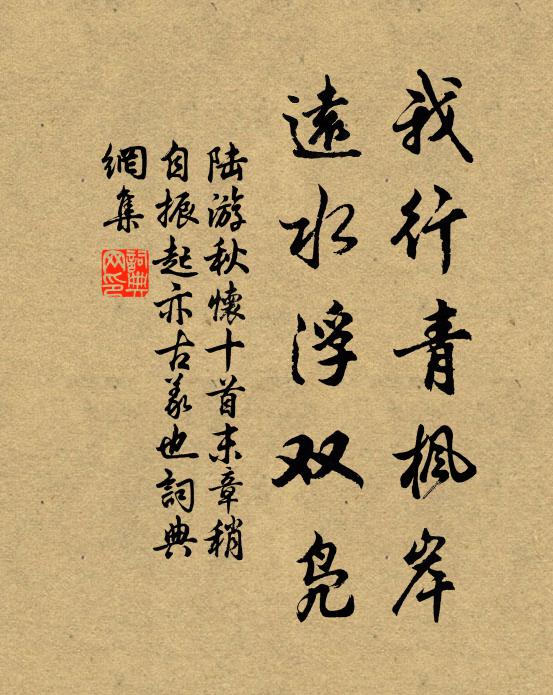 我行青枫岸
遠水浮双凫
陆游秋懷十首末章稍
自振起亦古义也詞典
網集
詞典网印